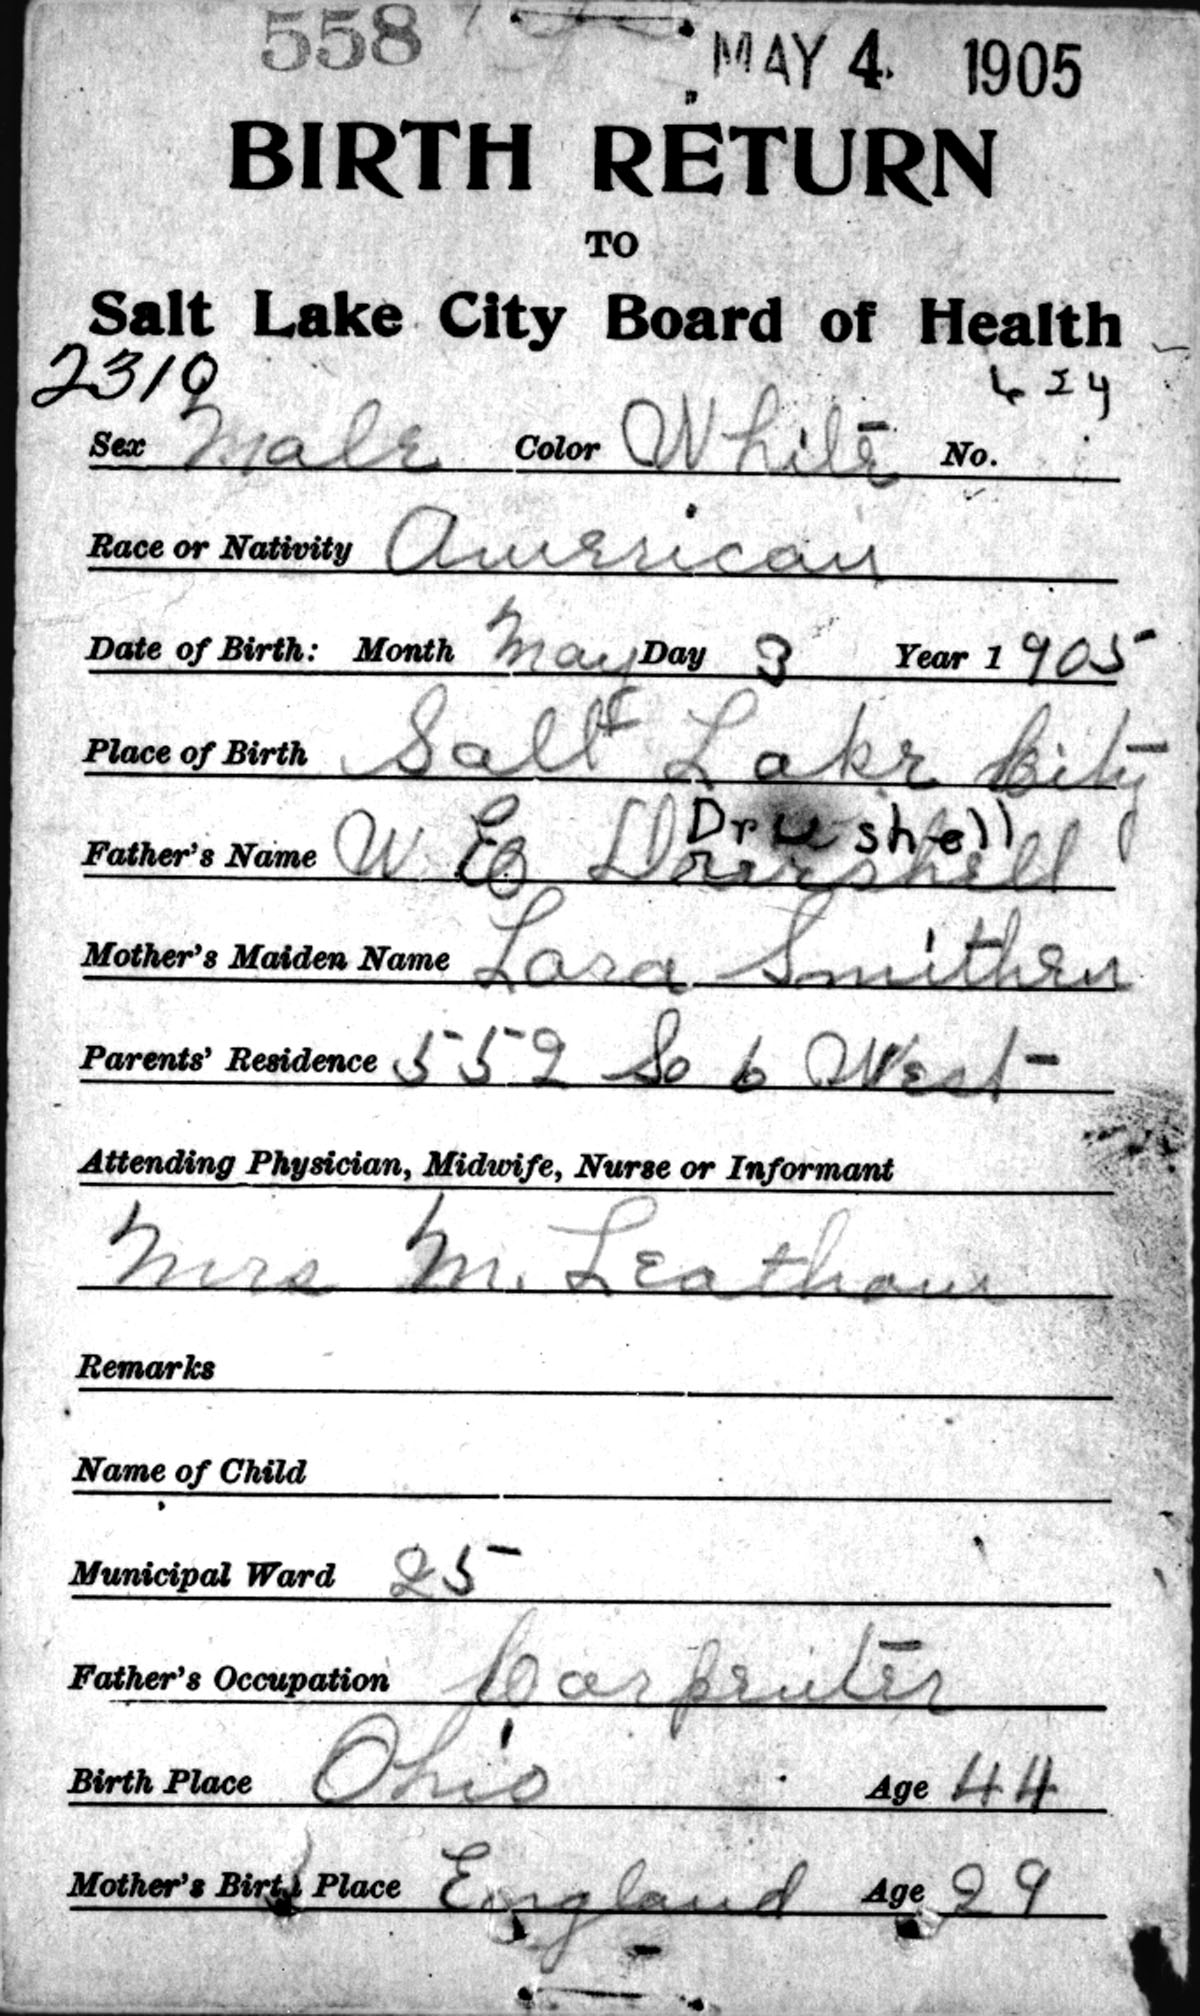 558 MAY 4 1905
BIRTH RETURN
TO
Salt Lake City Board of Health
2310
Sex Male Color White No.
Race or Nativity American
Date of Birth: Month May Day 3 Year 1905
Place of Birth Salt Lake City
Drushell
Father's Name W E
Mother's Maiden Name Lora Smithen
Parents' Residence 552 So 6 West
Attending Physician, Midwife, Nurse or Informant
Mrs M. Leatham
Remarks
Name of Child
Municipal Ward 25
Father's Occupation Carpenter
Birth Place Ohio Age 44
Mother's Birth Place England Age 29